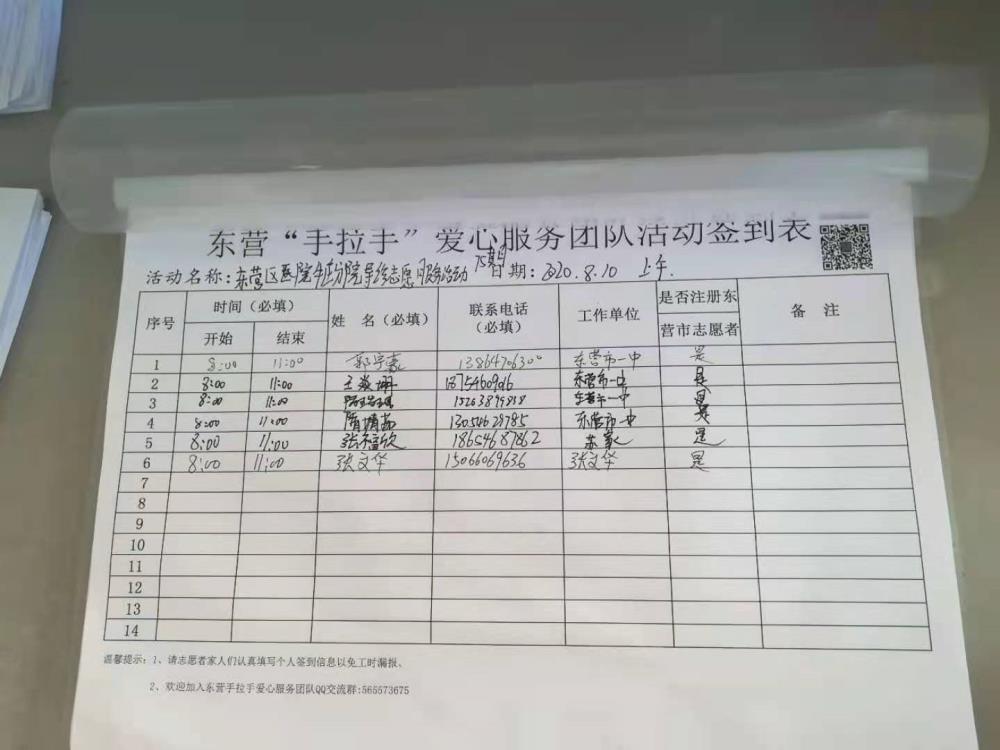 东营“手拉手”爱心服务团队活动签到表
活动名称：东营区医院 分院导诊志愿服务活动 日期：2020.8.10 上午.
序号 时间（必填） 姓 名（必填） 联系电话（必填） 工作单位 是否注册东营市志愿者 备 注
开始 结束
1 8:00 11:00 郭宇豪 1386470630 东营市一中 是
2 8:00 11:00 王 东营市一中 是
3 8:00 11:00 东营市一中 是
4 8:00 11:00 隋 13054628785 东营市一中 是
5 8:00 11:00 张 欣 18654687862 是
6 8:00 11:00 张文华 15066069636 张文华 是
7
8
9
10
11
12
13
14
温馨提示：1、请志愿者家人们认真填写个人签到信息以免工时漏报、
2、欢迎加入东营手拉手爱心服务团队QQ交流群:565573675